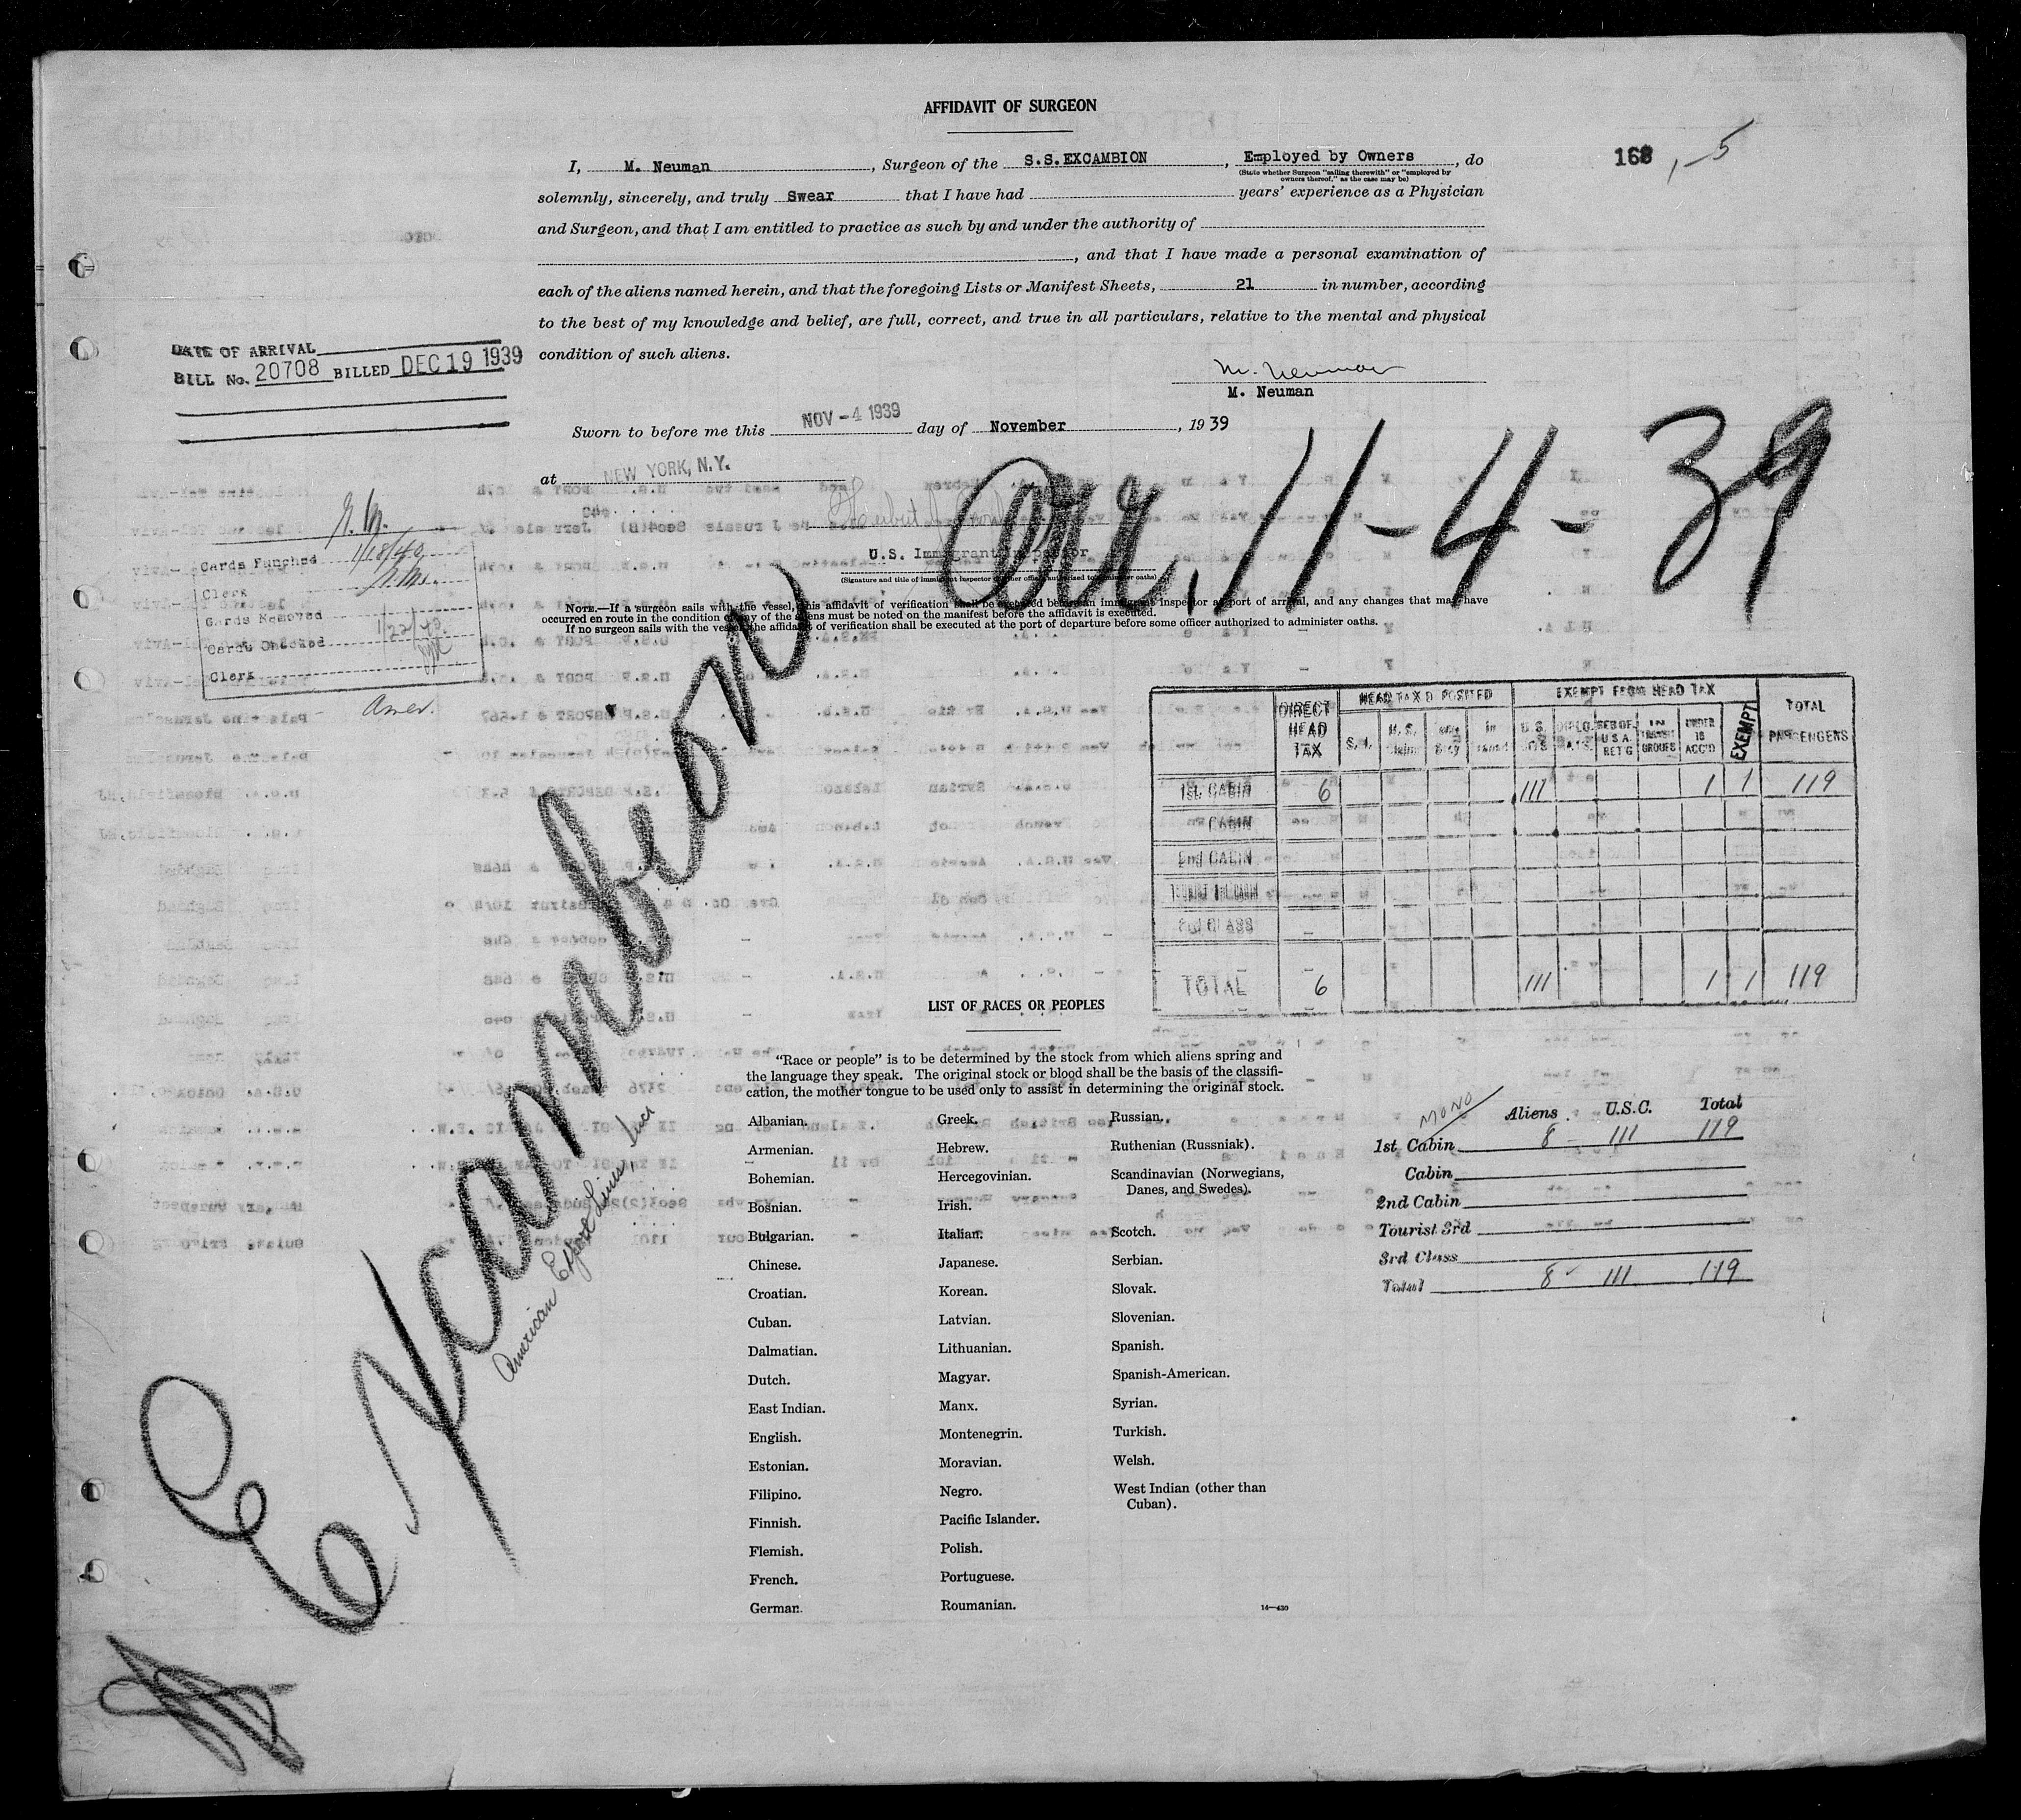 AFFIDAVIT OF SURGEON
I, M. Neuman, Surgeon of the S.S.EXCAMBION, Employed by Owners, do
(State whether Surgeon "sailing therewith" or "employed by
owners thereof," as the case may be)
168, 5
solemnly, sincerely, and truly Swear that I have had years' experience as a Physician
and Surgeon, and that I am entitled to practice as such by and under the authority of
, and that I have made a personal examination of
each of the aliens named herein, and that the foregoing Lists or Manifest Sheets, 21 in number, according
to the best of my knowledge and belief, are full, correct, and true in all particulars, relative to the mental and physical
condition of such aliens.
DATE OF ARRIVAL
BILL No. 20708 BILLED DEC 19 1939
M. Neuman
M. Neuman
Sworn to before me this NOV -4 1939 day of November, 1939
at NEW YORK, N.Y.
Arr. 11-4-39
U.S. Immigrant Inspector
(Signature and title of immigrant inspector or other officer authorized to administer oaths)
NOTE.—If a surgeon sails with the vessel, this affidavit of verification shall be executed before an immigrant inspector at port of arrival, and any changes that may have
occurred en route in the condition of any of the aliens must be noted on the manifest before the affidavit is executed.
If no surgeon sails with the vessel the affidavit of verification shall be executed at the port of departure before some officer authorized to administer oaths.
Cards Punched 1/18/40
Clerk
Cards Removed
Cards Checked 1/22/40
Clerk
Amer.
Excambion
American Export Lines, Inc.
DIRECT HEAD TAX
HEAD TAX DEPOSITED
EXEMPT FROM HEAD TAX
TOTAL PASSENGERS
S. I.
U. S.
IN TRANSIT GROUPS
UNDER 16 ACC'D
EXEMPT
1st. CABIN 6 111 1 1 119
CABIN
2nd CABIN
TOURIST 3rd CABIN
3rd CLASS
TOTAL 6 111 1 1 119
LIST OF RACES OR PEOPLES
"Race or people" is to be determined by the stock from which aliens spring and
the language they speak. The original stock or blood shall be the basis of the classifi-
cation, the mother tongue to be used only to assist in determining the original stock.
Albanian.
Armenian.
Bohemian.
Bosnian.
Bulgarian.
Chinese.
Croatian.
Cuban.
Dalmatian.
Dutch.
East Indian.
English.
Estonian.
Filipino.
Finnish.
Flemish.
French.
German.
Greek.
Hebrew.
Hercegovinian.
Irish.
Italian.
Japanese.
Korean.
Latvian.
Lithuanian.
Magyar.
Manx.
Montenegrin.
Moravian.
Negro.
Pacific Islander.
Polish.
Portuguese.
Roumanian.
Russian.
Ruthenian (Russniak).
Scandinavian (Norwegians,
Danes, and Swedes).
Scotch.
Serbian.
Slovak.
Slovenian.
Spanish.
Spanish-American.
Syrian.
Turkish.
Welsh.
West Indian (other than
Cuban).
14—430
MONO
Aliens U.S.C. Total
1st Cabin 8 111 119
Cabin
2nd Cabin
Tourist 3rd
3rd Class
Total 8 111 119